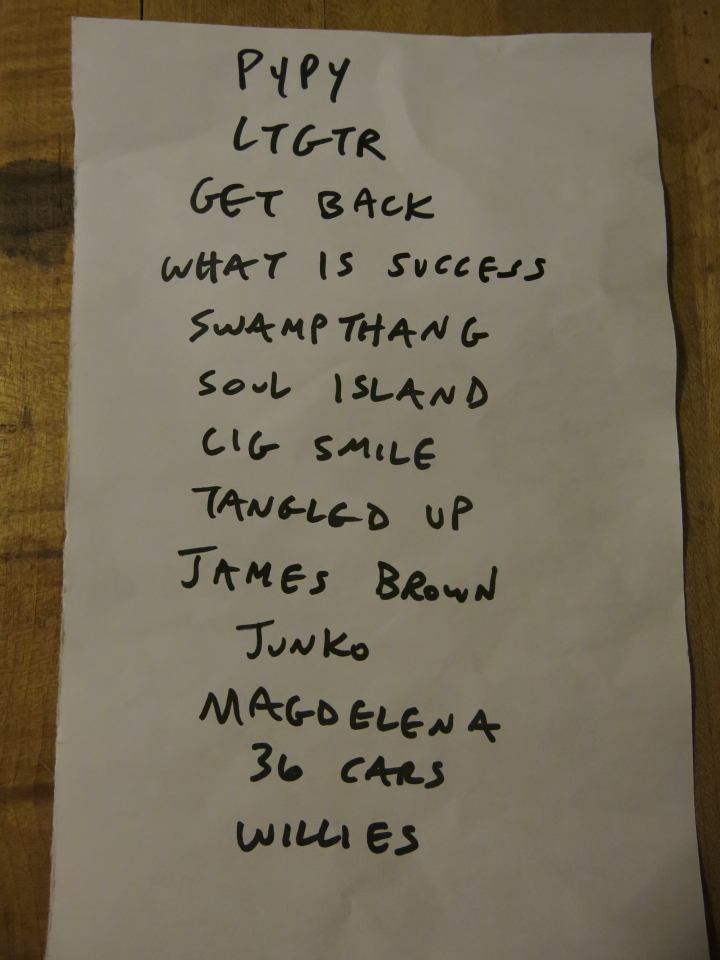 PYPY
LTGTR
GET BACK
WHAT IS SUCCESS
SWAMP THANG
SOUL ISLAND
CIG SMILE
TANGLED UP
JAMES BROWN
JUNKO
MAGDELENA
36 CARS
WILLIES